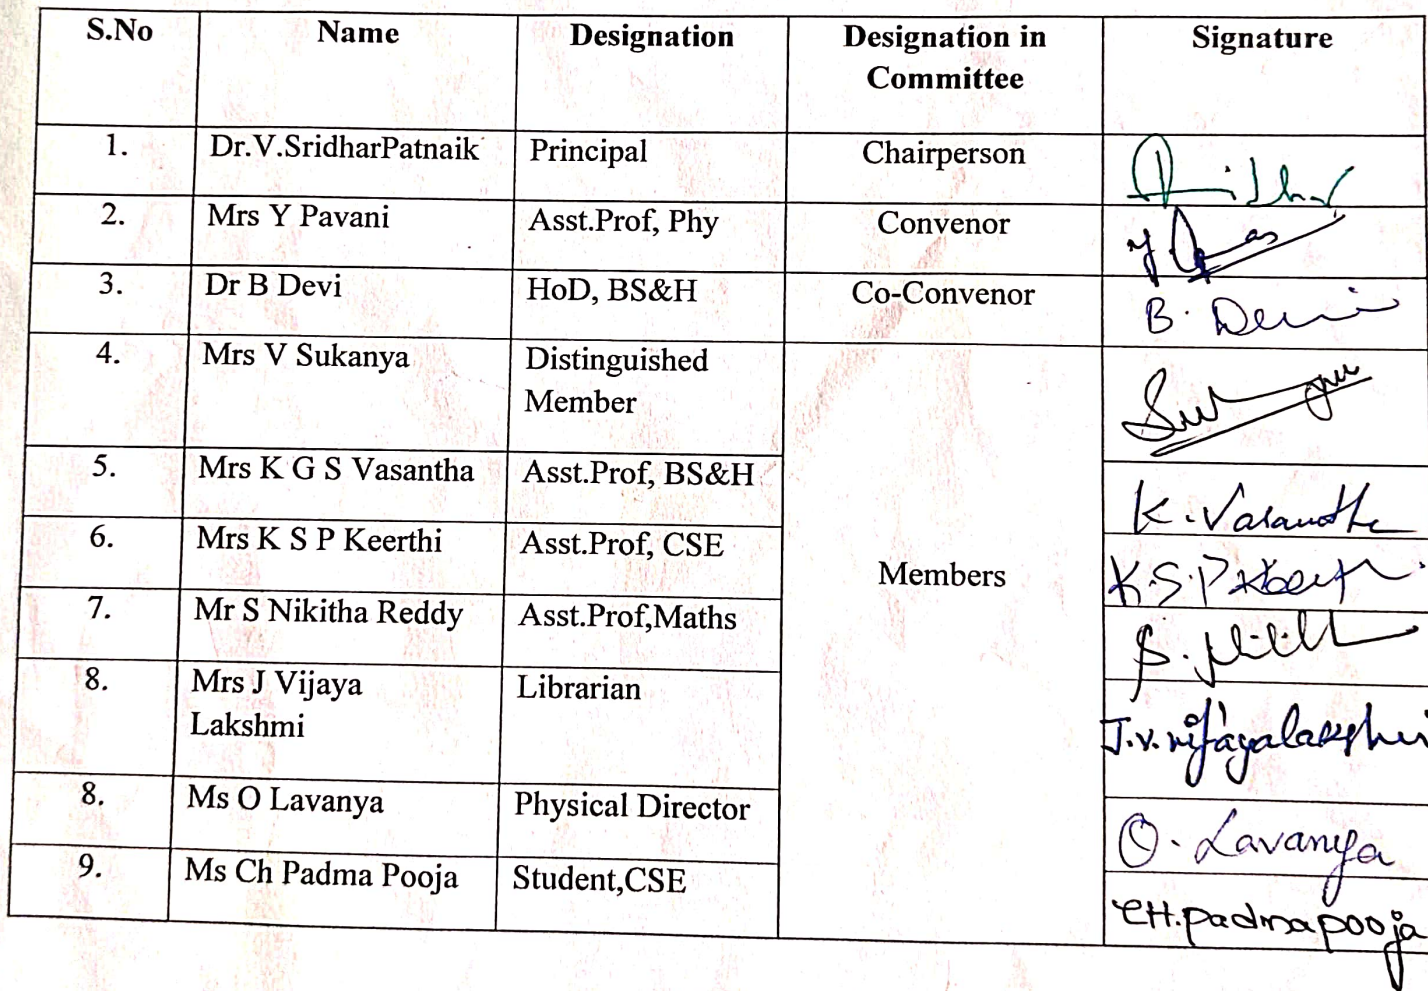 S.No Name Designation Designation in Committee Signature
1. Dr.V.SridharPatnaik Principal Chairperson
2. Mrs Y Pavani Asst.Prof, Phy Convenor
3. Dr B Devi HoD, BS&H Co-Convenor B. Devi
4. Mrs V Sukanya Distinguished
Member
5. Mrs K G S Vasantha Asst.Prof, BS&H K. Vasantha
6. Mrs K S P Keerthi Asst.Prof, CSE Members K.S.P Keerthi
7. Mr S Nikitha Reddy Asst.Prof,Maths
8. Mrs J Vijaya Librarian J.V. Vijayalakshmi
Lakshmi
8. Ms O Lavanya Physical Director O. Lavanya
9. Ms Ch Padma Pooja Student,CSE CH.padmapooja